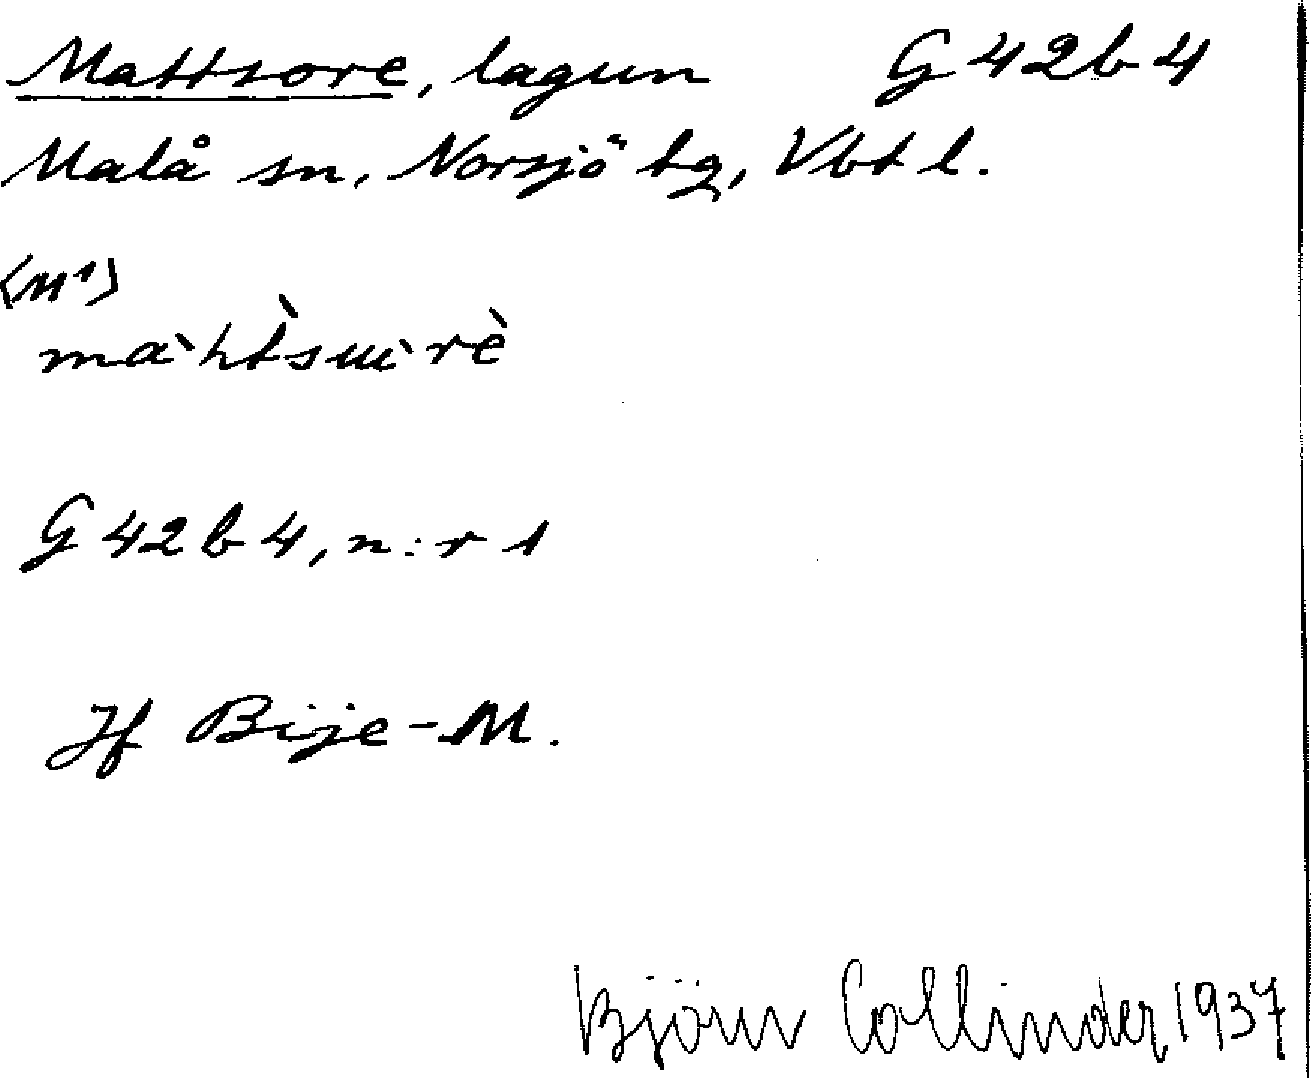 Mattsore, lagun G42b4
Malå sn, Norsjö tg, Vbt l.
<n¹>
G42b4, n:r 1
Jf Bije-M.
Björn Collinder 1937